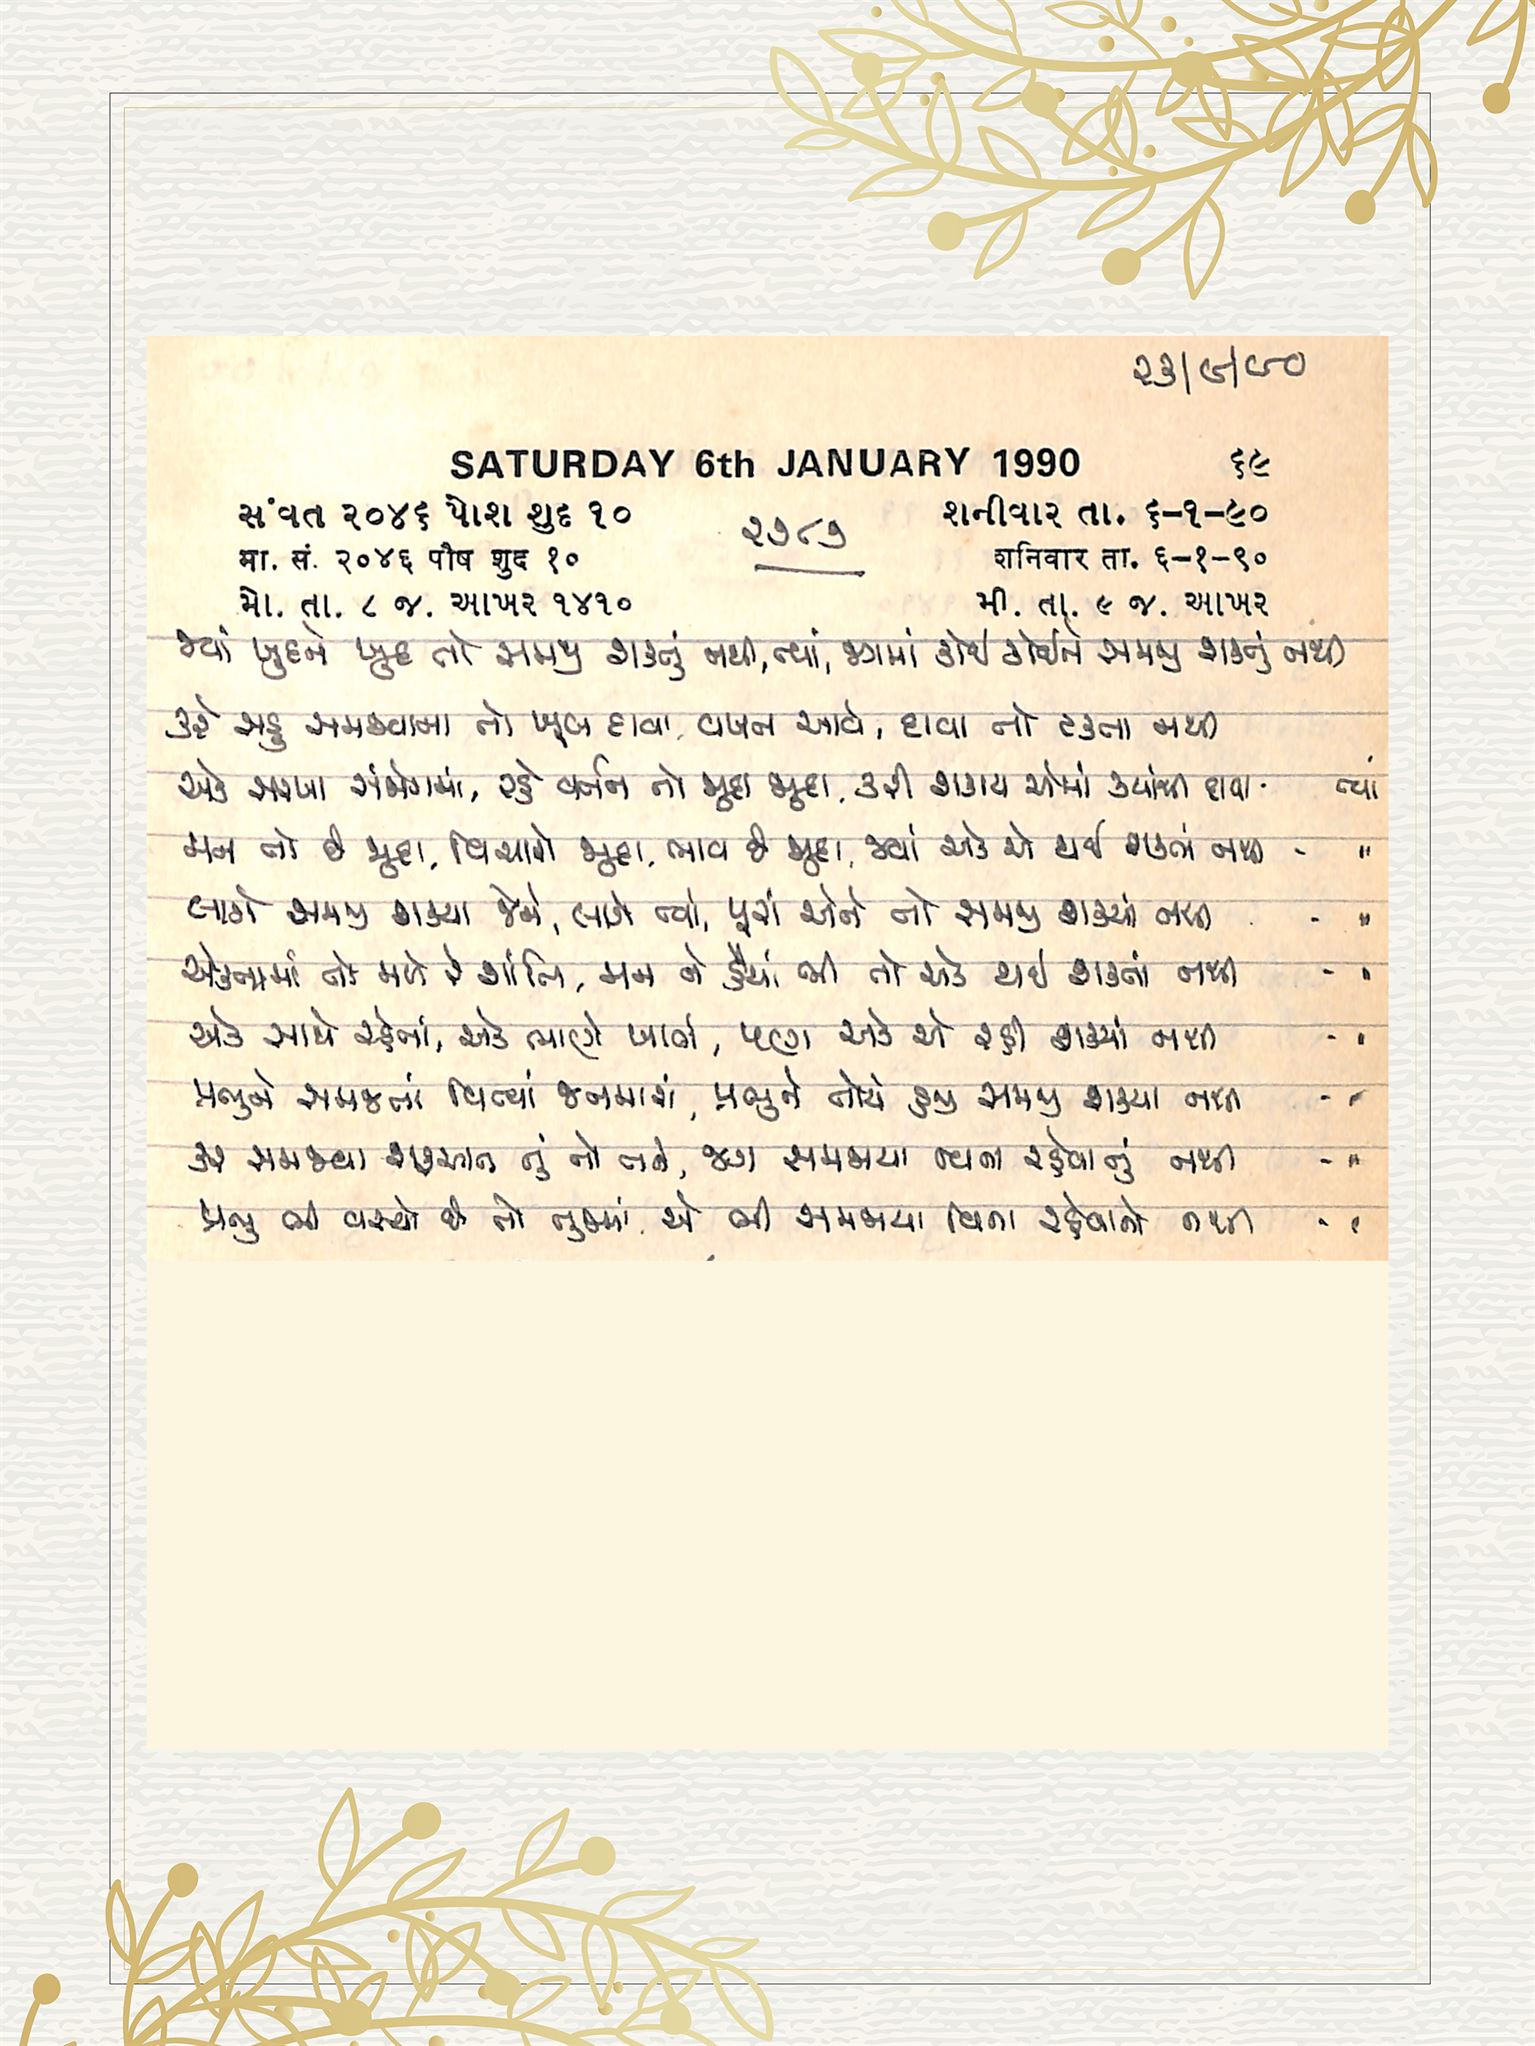 ૨૩/૯/૯૦
SATURDAY 6th JANUARY 1990 ૬૯
સંવત ૨૦૪૬ પોશ શુદ ૧૦ ૨૭૮૭ શનીવાર તા. ૬-૧-૯૦
मा. सं. २०४६ पौष शुद १० शनिवार ता. ६-१-९०
મો. તા. ૮ જ. આખર ૧૪૧૦ મી. તા. ૯ જ. આખર
જ્યાં ખુદને ખુદ તો સમજી શકતું નથી, ત્યાં, જગમાં કોઈ કોઈને સમજી શકતું નથી
કરે સહુ સમજવાના તો ખૂબ દાવા, વખત આવે, દાવા તો ટકતા નથી
એક સરખા સંજોગમાં, રહે વર્તન તો જુદા જુદા, કરી શકાય એમાં ક્યાંથી દાવા - ત્યાં
મન તો છે જુદા, વિચારો જુદા, ભાવ છે જુદા, જ્યાં એક એ થઈ શકતાં નથી - "
લાગે સમજી શક્યા જેને, લાગે ત્યાં, પૂરાં એને તો સમજી શક્યાં નથી - "
એકતામાં તો મળે રે શાંતિ, મન ને હૈયાં ભી તો એક થઈ શકતાં નથી - "
એક સાથે રહેતાં, એક ભાણે ખાતાં, પણ એક એ રહી શક્યાં નથી - "
પ્રભુને સમજતાં વિત્યાં જનમારા, પ્રભુને તોયે હજી સમજી શક્યા નથી - "
કર સમજવા શરૂઆત તું તો તને, જગ સમજાયા વિના રહેવાનું નથી - "
પ્રભુ ભી વસ્યો છે તો તુજમાં, એ ભી સમજાયા વિના રહેવાનો નથી - "